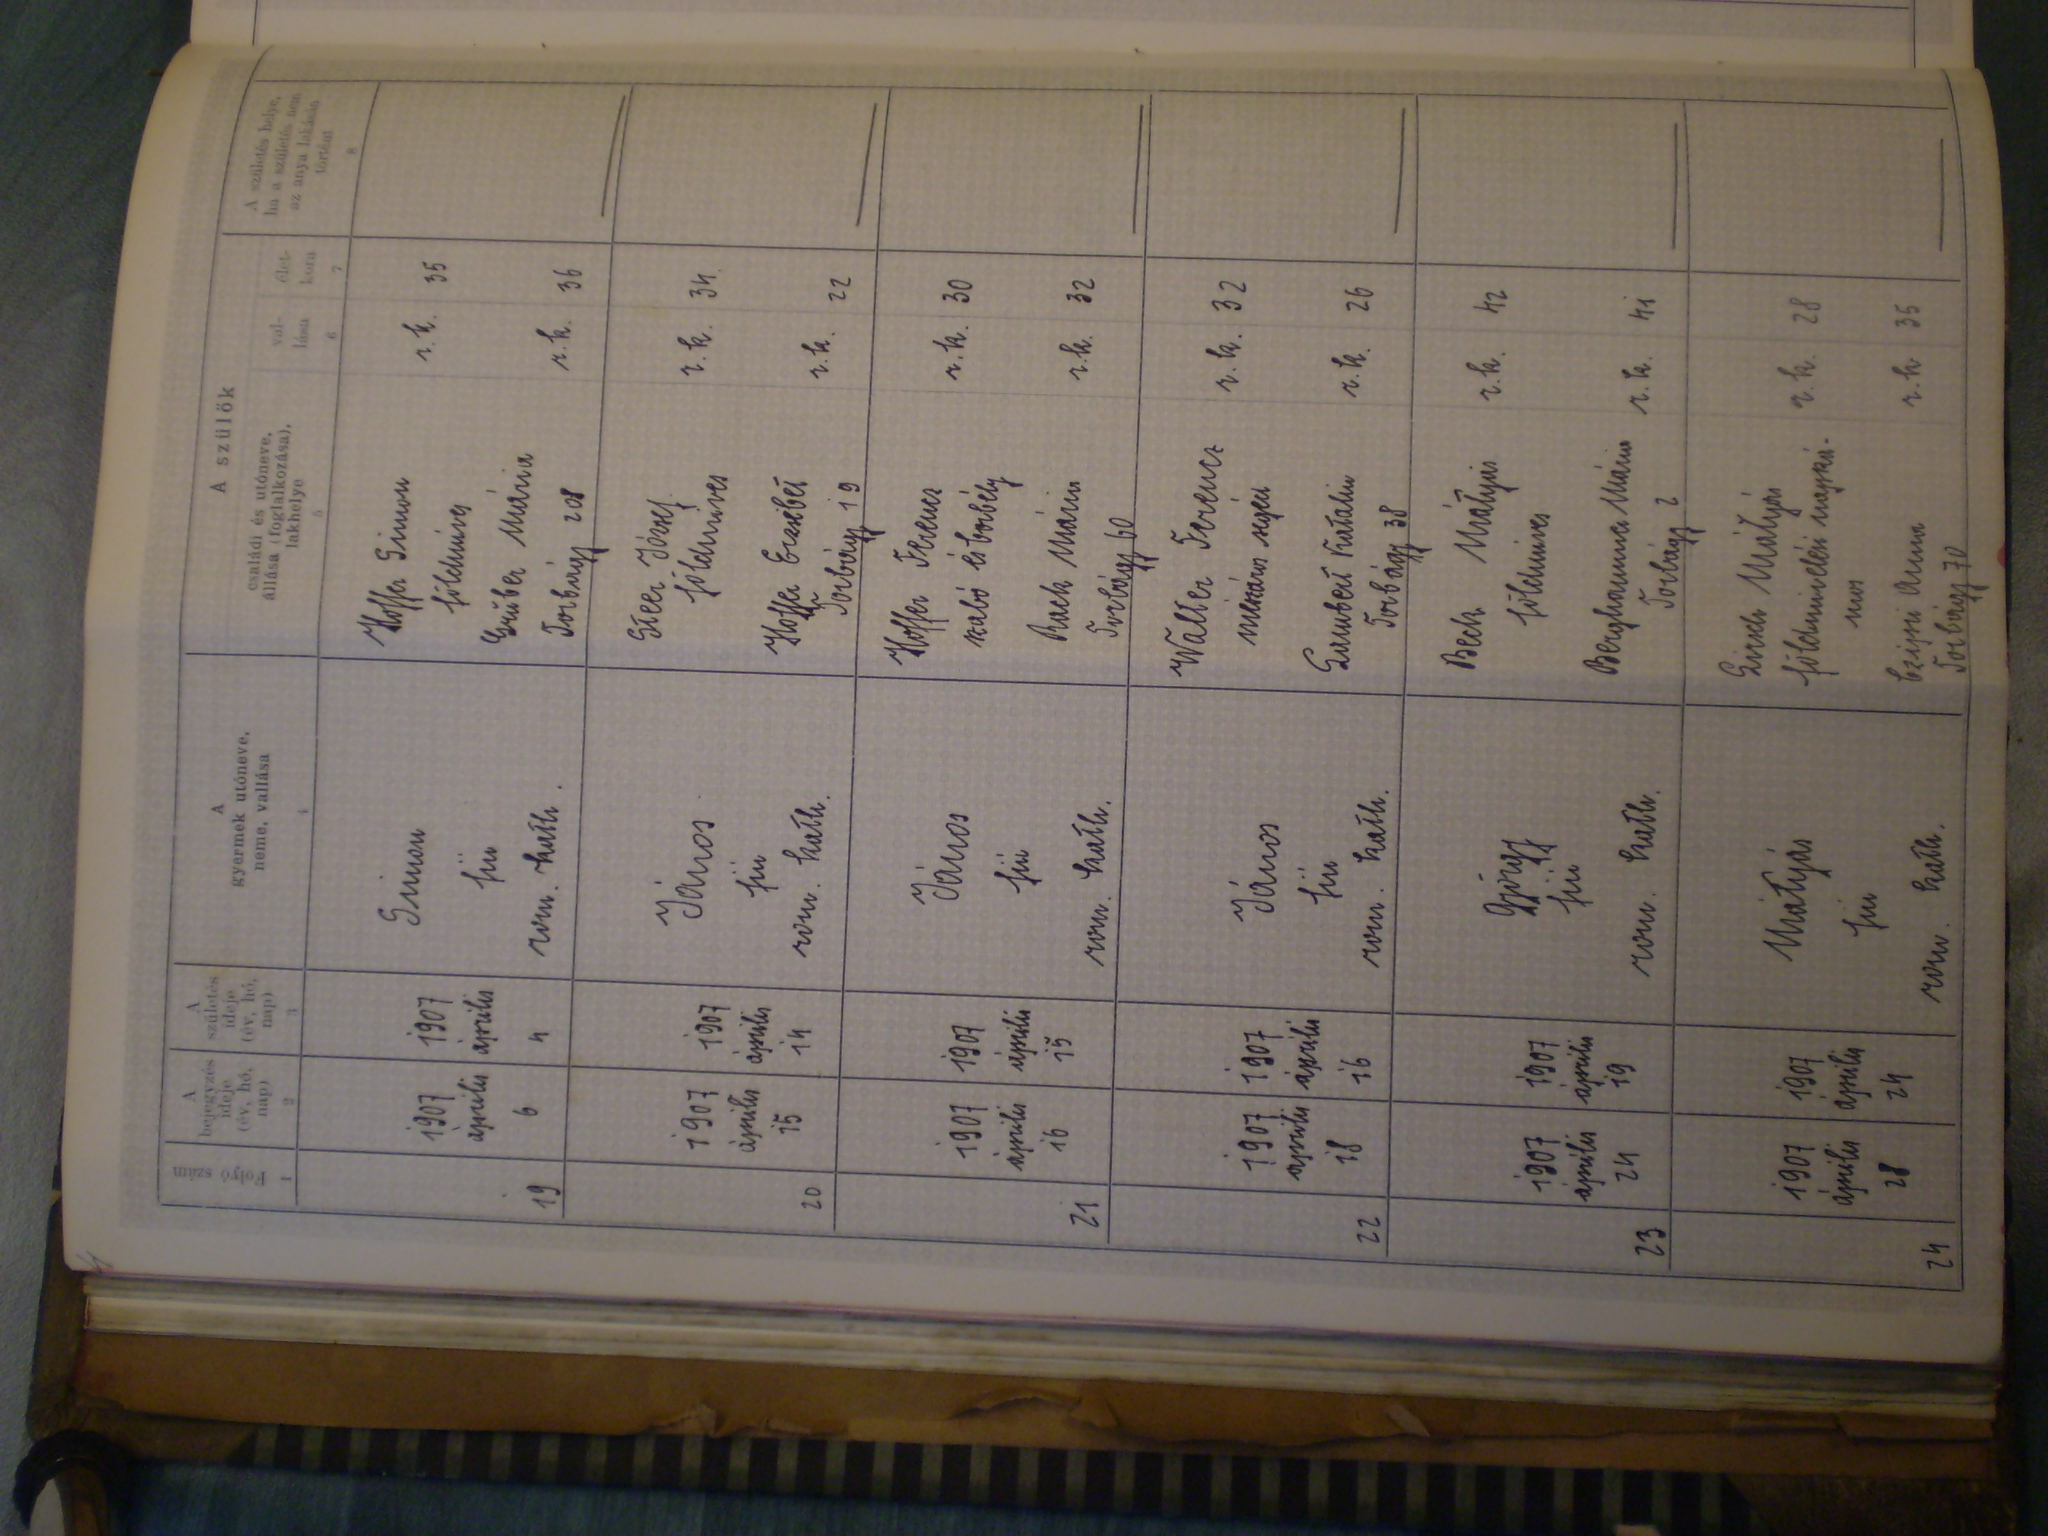 Folyó szám
1
A bejegyzés ideje (év, hó, nap)
2
A születés ideje (év, hó, nap)
3
A gyermek utóneve, neme, vallása
4
A szülők
családi és utóneve, állása (foglalkozása), lakhelye
5
val- lása
6
élet- kora
7
A születés helye, ha a születés nem az anya lakásán történt
8
19
1907 április 6
1907 április 4
Simon
fiu
rom. kath.
Hoffer Simon r.k. 35
földmíves
Gruber Mária r.k. 36
Torbágy 208
20
1907 április 15
1907 április 14
János
fiu
rom. kath.
József r.k. 34
földmíves
Hoffer Erzsébet r.k. 22
Torbágy 19
21
1907 április 16
1907 április 15
János
fiu
rom. kath.
Hoffer Ferencz r.k. 30
szabó és borbély
Mária r.k. 32
Torbágy 60
22
1907 április 18
1907 április 16
János
fiu
rom. kath.
Walter Ferencz r.k. 32
mészáros segéd
Katalin r.k. 26
Torbágy 38
23
1907 április 24
1907 április 19
György
fiu
rom. kath.
Bech Mátyás r.k. 42
földmíves
Berghammer Mária r.k. 41
Torbágy 2
24
1907 április 28
1907 április 24
Mátyás
fiu
rom. kath.
Mátyás r.k. 28
földmívelési napszá-
mos
Czippi Anna r.k 35
Torbágy 70